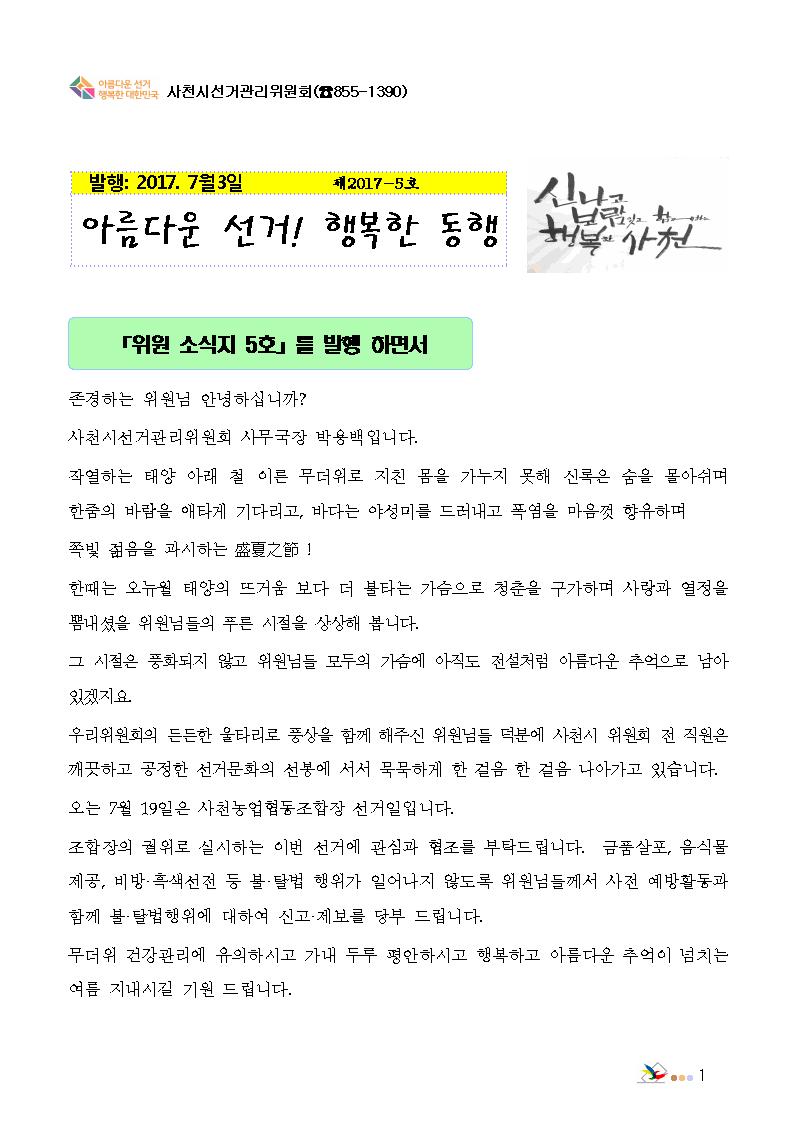 아름다운 선거
행복한 대한민국
사천시선거관리위원회(☎855-1390)
발행: 2017. 7월3일 제2017-5호
아름다운 선거! 행복한 동행
신나고
보람있고
행복한 사천
「위원 소식지 5호」를 발행 하면서
존경하는 위원님 안녕하십니까?
사천시선거관리위원회 사무국장 박용백입니다.
작열하는 태양 아래 철 이른 무더위로 지친 몸을 가누지 못해 신록은 숨을 몰아쉬며
한줌의 바람을 애타게 기다리고, 바다는 야성미를 드러내고 폭염을 마음껏 향유하며
쪽빛 젊음을 과시하는 盛夏之節 !
한때는 오뉴월 태양의 뜨거움 보다 더 불타는 가슴으로 청춘을 구가하며 사랑과 열정을
뽐내셨을 위원님들의 푸른 시절을 상상해 봅니다.
그 시절은 풍화되지 않고 위원님들 모두의 가슴에 아직도 전설처럼 아름다운 추억으로 남아
있겠지요.
우리위원회의 든든한 울타리로 풍상을 함께 해주신 위원님들 덕분에 사천시 위원회 전 직원은
깨끗하고 공정한 선거문화의 선봉에 서서 묵묵하게 한 걸음 한 걸음 나아가고 있습니다.
오는 7월 19일은 사천농업협동조합장 선거일입니다.
조합장의 궐위로 실시하는 이번 선거에 관심과 협조를 부탁드립니다. 금품살포, 음식물
제공, 비방·흑색선전 등 불·탈법 행위가 일어나지 않도록 위원님들께서 사전 예방활동과
함께 불·탈법행위에 대하여 신고·제보를 당부 드립니다.
무더위 건강관리에 유의하시고 가내 두루 평안하시고 행복하고 아름다운 추억이 넘치는
여름 지내시길 기원 드립니다.
1